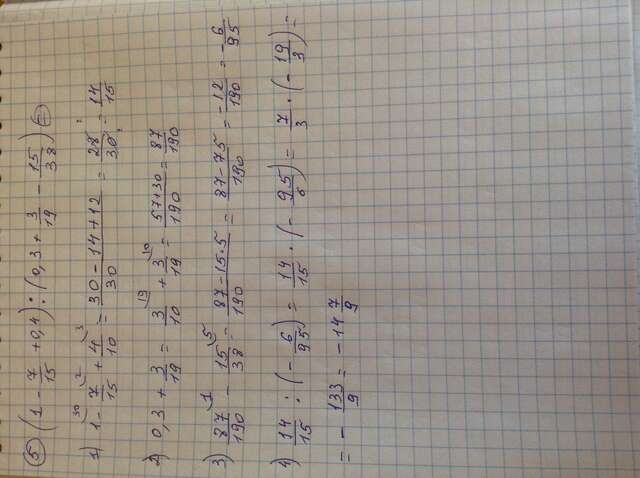 ⑤ (1 - 7/15 + 0,4) : (0,3 + 3/19 - 15/38) =
1) 1 - 7/15 + 4/10 = (30 - 14 + 12)/30 = 28/30 = 14/15
2) 0,3 + 3/19 = 3/10 + 3/19 = (57+30)/190 = 87/190
3) 87/190 - 15/38 = (87 - 15·5)/190 = (87 - 75)/190 = -12/190 = -6/95
4) 14/15 : (- 6/95) = 14/15 · (- 95/6) = 7/3 · (- 19/3) =
= - 133/9 = - 14 7/9